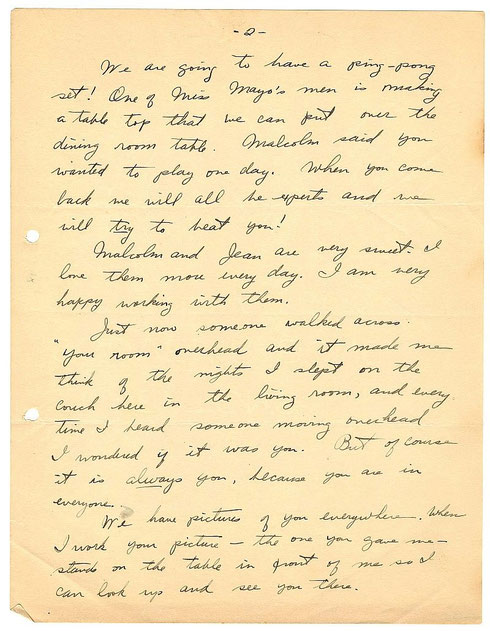 -2-
We are going to have a ping-pong
set! One of Miss Mayo's men is making
a table top that we can put over the
dining room table. Malcolm said you
wanted to play one day. When you come
back we will all be experts and we
will try to beat you!
Malcolm and Jean are very sweet. I
love them more every day. I am very
happy working with them.
Just now someone walked across
"your room" overhead and it made me
think of the nights I slept on the
couch here in the living room, and every
time I heard someone moving overhead
I wondered if it was you. But of course
it is always you, because you are in
everyone.
We have pictures of you everywhere. When
I work your picture — the one you gave me —
stands on the table in front of me so I
can look up and see you there.